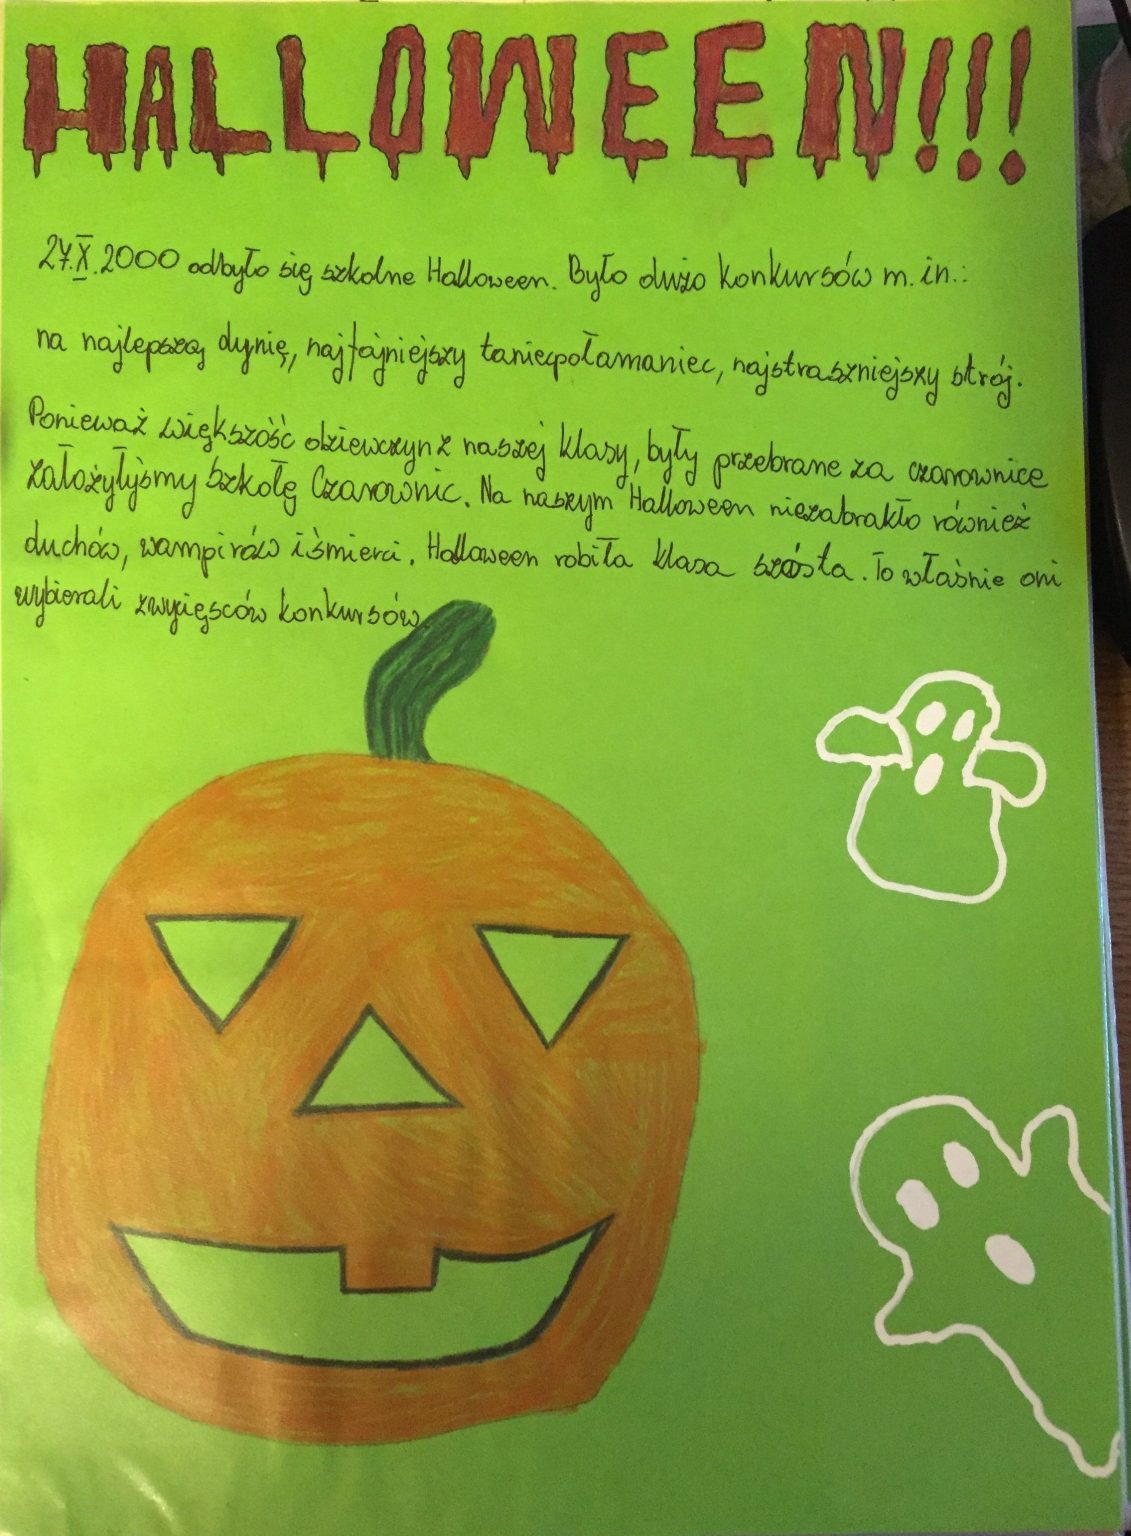 HALLOWEEN!!!
27.X.2000 odbyło się szkolne Halloween. Było dużo konkursów m.in.:
na najlepszą dynię, najfajniejszy taniecpołamaniec, najstraszniejszy strój.
Ponieważ większość dziewczyn z naszej klasy, były przebrane za czarownice
założyłyśmy Szkołę Czarownic. Na naszym Halloween niezabrakło również
duchów, wampirów i śmierci. Halloween robiła klasa szósta. To właśnie oni
wybierali zwycięsców konkursów